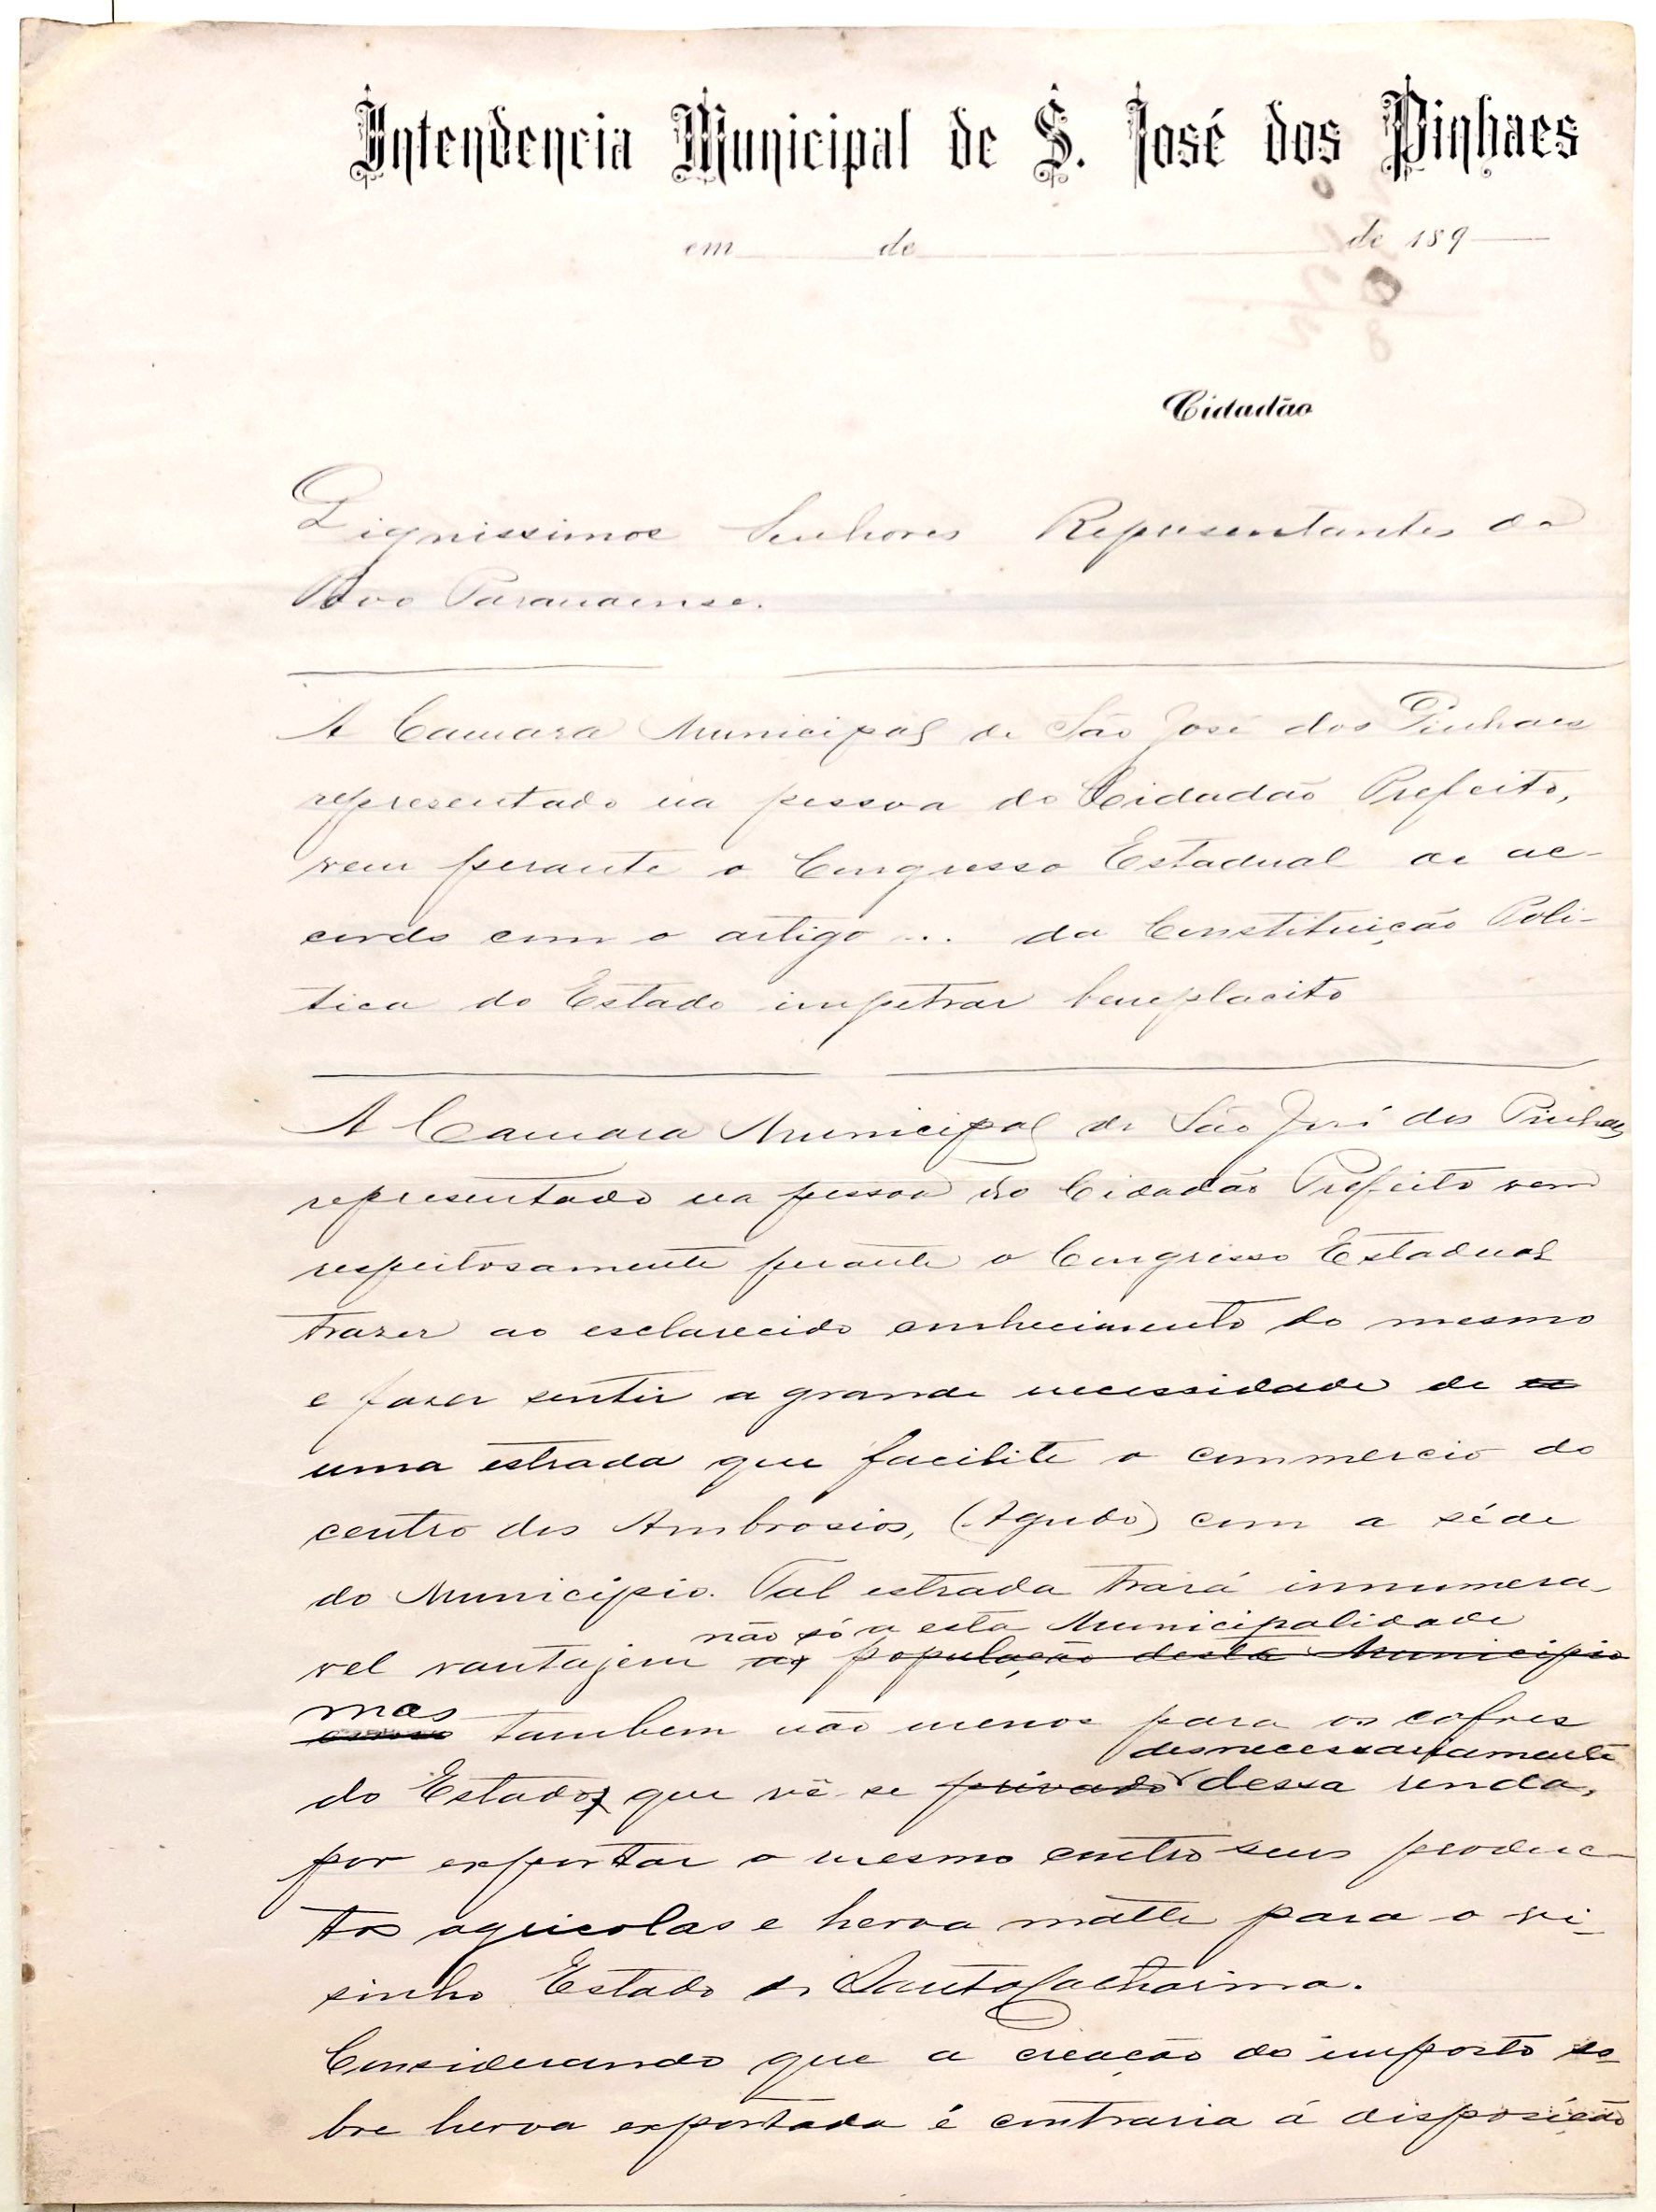 Intendencia Municipal de S. José dos Pinhaes
em de de 189
Cidadão
Dignissimos Senhores Representantes do
Povo Paranaense.
A Camara Municipal de São José dos Pinhaes
representado na pessoa do Cidadão Prefeito,
vem perante o Congresso Estadual de ac-
cordo com o artigo ... da Constituição Poli-
tica do Estado impetrar beneplacito
A Camara Municipal de São José dos Pinhaes
representado na pessoa do Cidadão Prefeito vem
respeitosamente perante o Congresso Estadual
trazer ao esclarecido conhecimento do mesmo
e fazer sentir a grande necessidade de
uma estrada que facilite o commercio do
centro dos Ambrosios, (Agudo) com a séde
do Municipio. Tal estrada trará innumera-
não só a esta Municipalidade
vel vantajem a população deste Municipio
mas
tambem não menos para os cofres
desnecessariamente
do Estado, que vê-se privado dessa renda,
por exportar o mesmo centro seus produc-
tos agricolas e herva matte para o vi-
sinho Estado de Santa Catharina.
Considerando que a creação do imposto so-
bre herva exportada é contraria á disposição